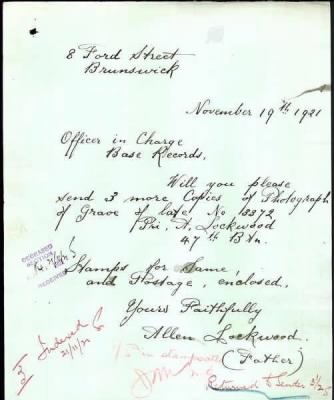 8 Ford Street
Brunswick
November 19th 1921
Officer in Charge
Base Records,
Will you please
send 3 more Copies of Photograph
of Grave of late No 3372
Pri. A. Lockwood
47th Btn.
Stamps for Same,
and Postage, enclosed.
Yours Faithfully
Allen Lockwood
(Father)
DECEASED
SECTION
RECEIVED
Indexed
21/11/21
in stamps
Returned to Sender